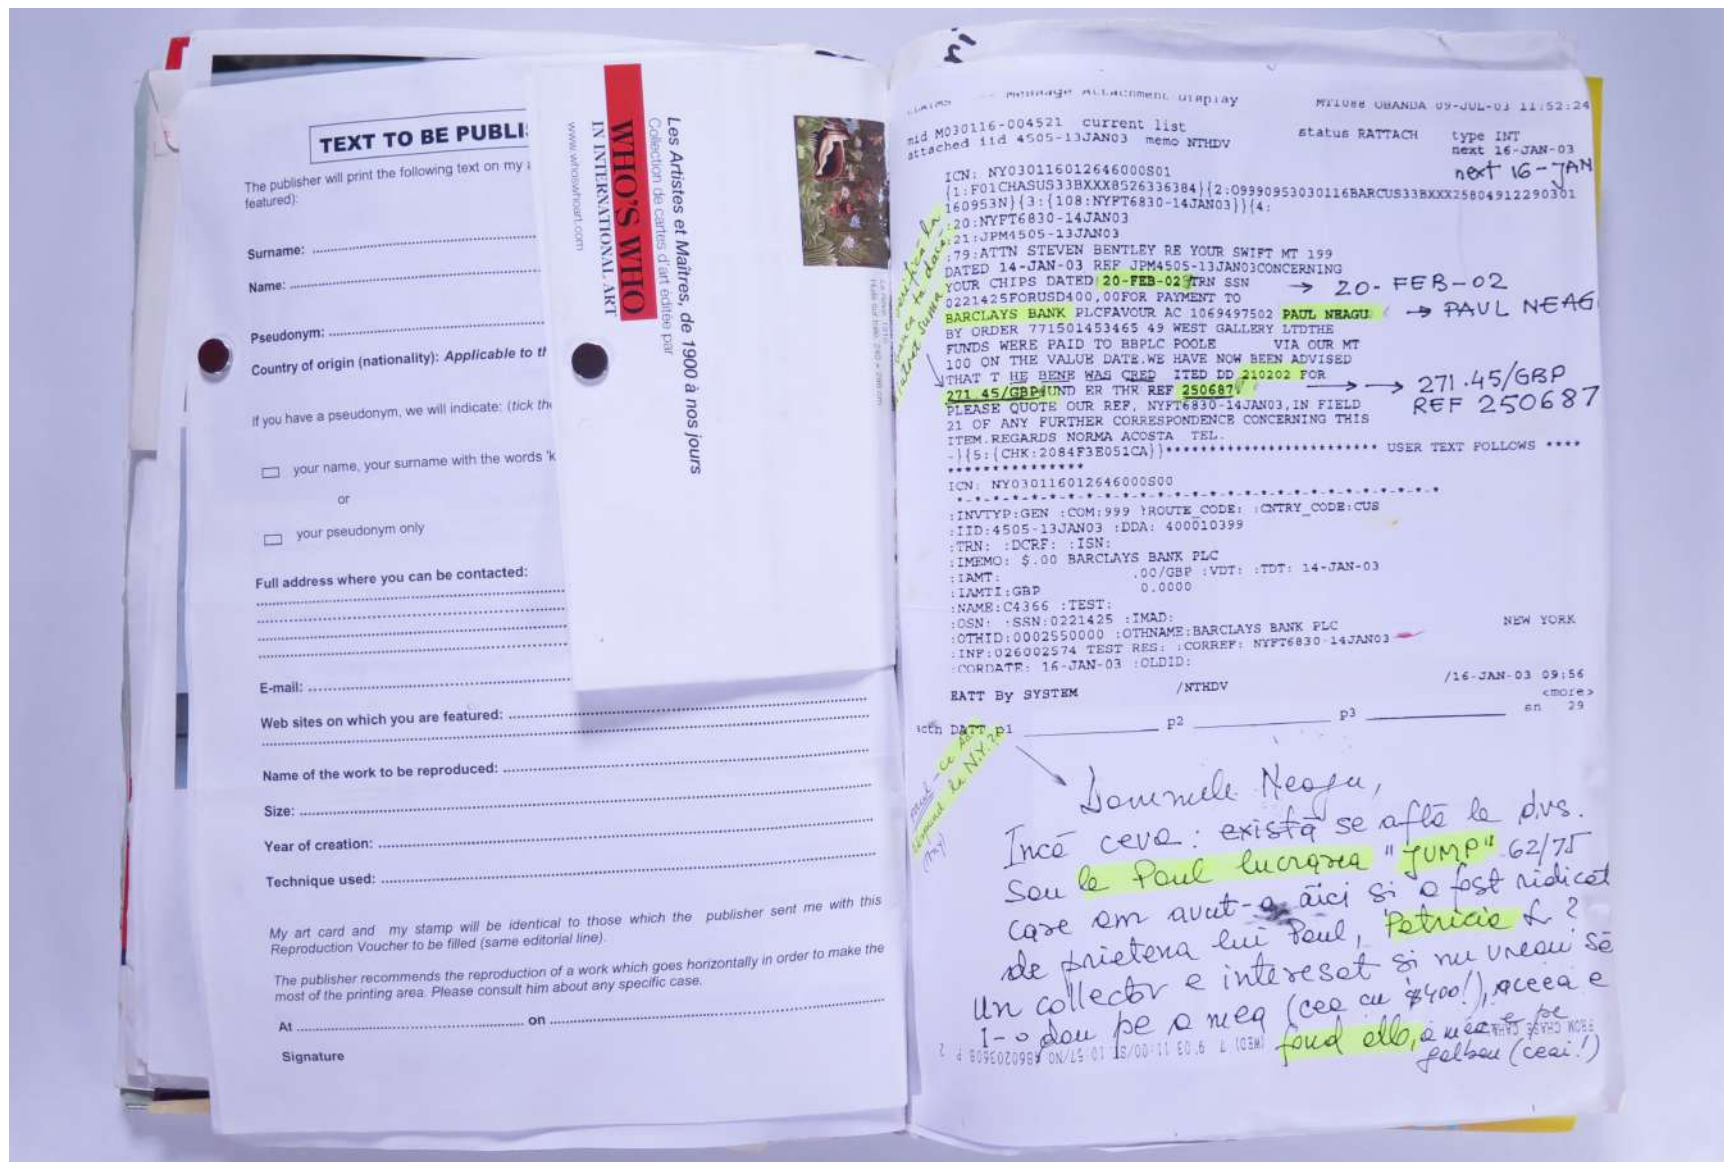 TEXT TO BE PUBLI
The publisher will print the following text on my
featured):
Surname:
Name:
Pseudonym:
Country of origin (nationality): Applicable to th
If you have a pseudonym, we will indicate: (tick the
your name, your surname with the words 'k
or
your pseudonym only
Full address where you can be contacted:
E-mail:
Web sites on which you are featured:
Name of the work to be reproduced:
Size:
Year of creation:
Technique used:
My art card and my stamp will be identical to those which the publisher sent me with this
Reproduction Voucher to be filled (same editorial line).
The publisher recommends the reproduction of a work which goes horizontally in order to make the
most of the printing area. Please consult him about any specific case.
At on
Signature
Les Artistes et Maîtres, de 1900 à nos jours
Collection de cartes d'art éditée par
WHO'S WHO
IN INTERNATIONAL ART
www.whoswhoart.com
Message Attachment Display MT1088 OBANDA 09-JUL-03 11:52:24
mid M030116-004521 current list status RATTACH type INT
attached iid 4505-13JAN03 memo NTHDV next 16-JAN-03
next 16-JAN
ICN: NY030116012646000S01
{1:F01CHASUS33BXXX8526336384}{2:O9990953030116BARCUS33BXXX25804912290301
160953N}{3:{108:NYFT6830-14JAN03}}{4:
:20:NYFT6830-14JAN03
:21:JPM4505-13JAN03
:79:ATTN STEVEN BENTLEY RE YOUR SWIFT MT 199
DATED 14-JAN-03 REF JPM4505-13JAN03CONCERNING
YOUR CHIPS DATED 20-FEB-02 TRN SSN → 20-FEB-02
0221425FORUSD400,00FOR PAYMENT TO
BARCLAYS BANK PLCFAVOUR AC 1069497502 PAUL NEAGU → PAUL NEAG
BY ORDER 771501453465 49 WEST GALLERY LTDTHE
FUNDS WERE PAID TO BBPLC POOLE VIA OUR MT
100 ON THE VALUE DATE.WE HAVE NOW BEEN ADVISED
THAT T HE BENE WAS CRED ITED DD 210202 FOR
271.45/GBP UND ER THR REF 250687 → → 271.45/GBP
REF 250687
PLEASE QUOTE OUR REF, NYFT6830-14JAN03,IN FIELD
21 OF ANY FURTHER CORRESPONDENCE CONCERNING THIS
ITEM.REGARDS NORMA ACOSTA TEL.
-}{5:{CHK:2084F3E051CA}}************************ USER TEXT FOLLOWS ****
***************
ICN: NY030116012646000S00
:INVTYP:GEN :COM:999 :ROUTE_CODE: :CNTRY_CODE:CUS
:IID:4505-13JAN03 :DDA: 400010399
:TRN: :DCRF: :ISN:
:IMEMO: $.00 BARCLAYS BANK PLC
:IAMT: .00/GBP :VDT: :TDT: 14-JAN-03
:IAMTI:GBP 0.0000
:NAME:C4366 :TEST:
:OSN: :SSN:0221425 :IMAD:
:OTHID:0002550000 :OTHNAME:BARCLAYS BANK PLC NEW YORK
:INF:026002574 TEST RES: :CORREF: NYFT6830-14JAN03
:CORDATE: 16-JAN-03 :OLDID:
RATT By SYSTEM /NTHDV /16-JAN-03 09:56
<more>
actn DATT p1 p2 p3 sn 29
Domnule Neagu,
Încă ceva: există se află la dvs.
sau la Paul lucrarea "JUMP" 62/75
care am avut-o aici și a fost ridicat
de prietena lui Paul, Patricia L?
Un collector e interesat și nu vreau să
I-o dau pe a mea (cea cu $400!), aceea e
fond alb, a mea e pe
galben (ceai!)